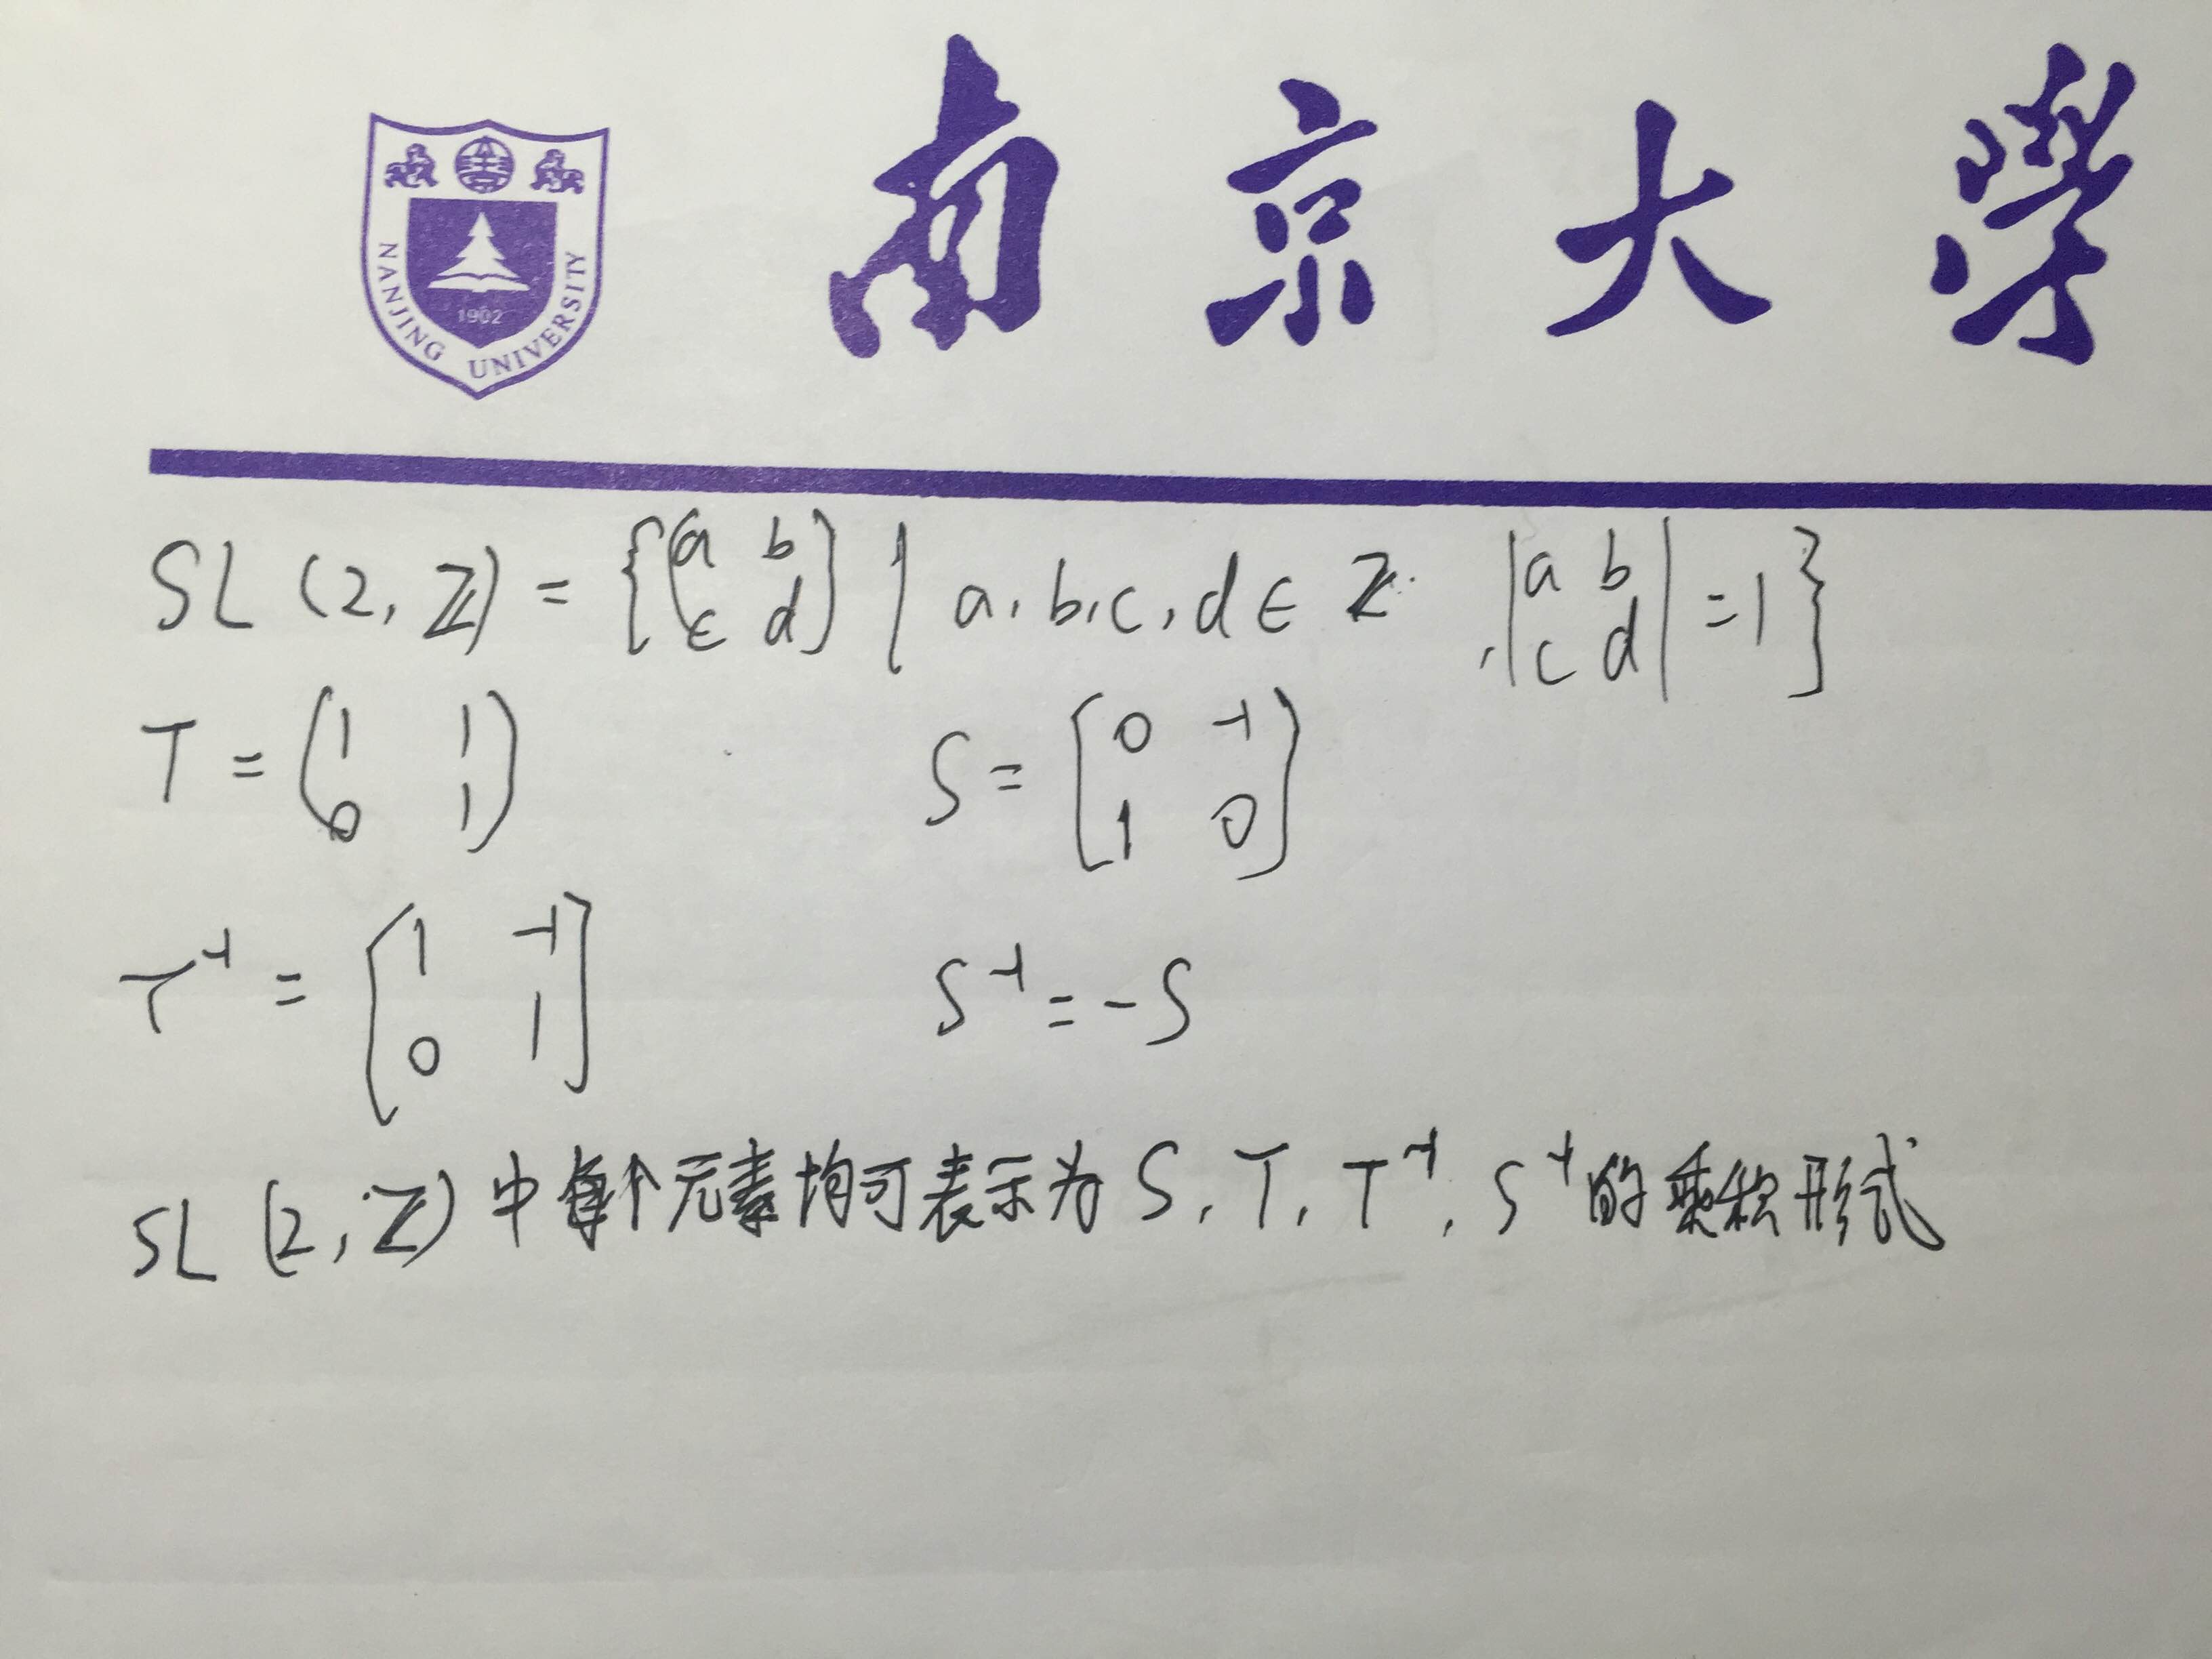 南京大学
NANJING UNIVERSITY
1902
SL(2,Z) = {(a b
c d) | a,b,c,d ∈ Z, |a b
c d| = 1}
T = (1 1
0 1)   S = (0 -1
1 0)
T⁻¹ = (1 -1
0 1)   S⁻¹ = -S
SL(2,Z)中每个元素均可表示为S,T,T⁻¹,S⁻¹的乘积形式.